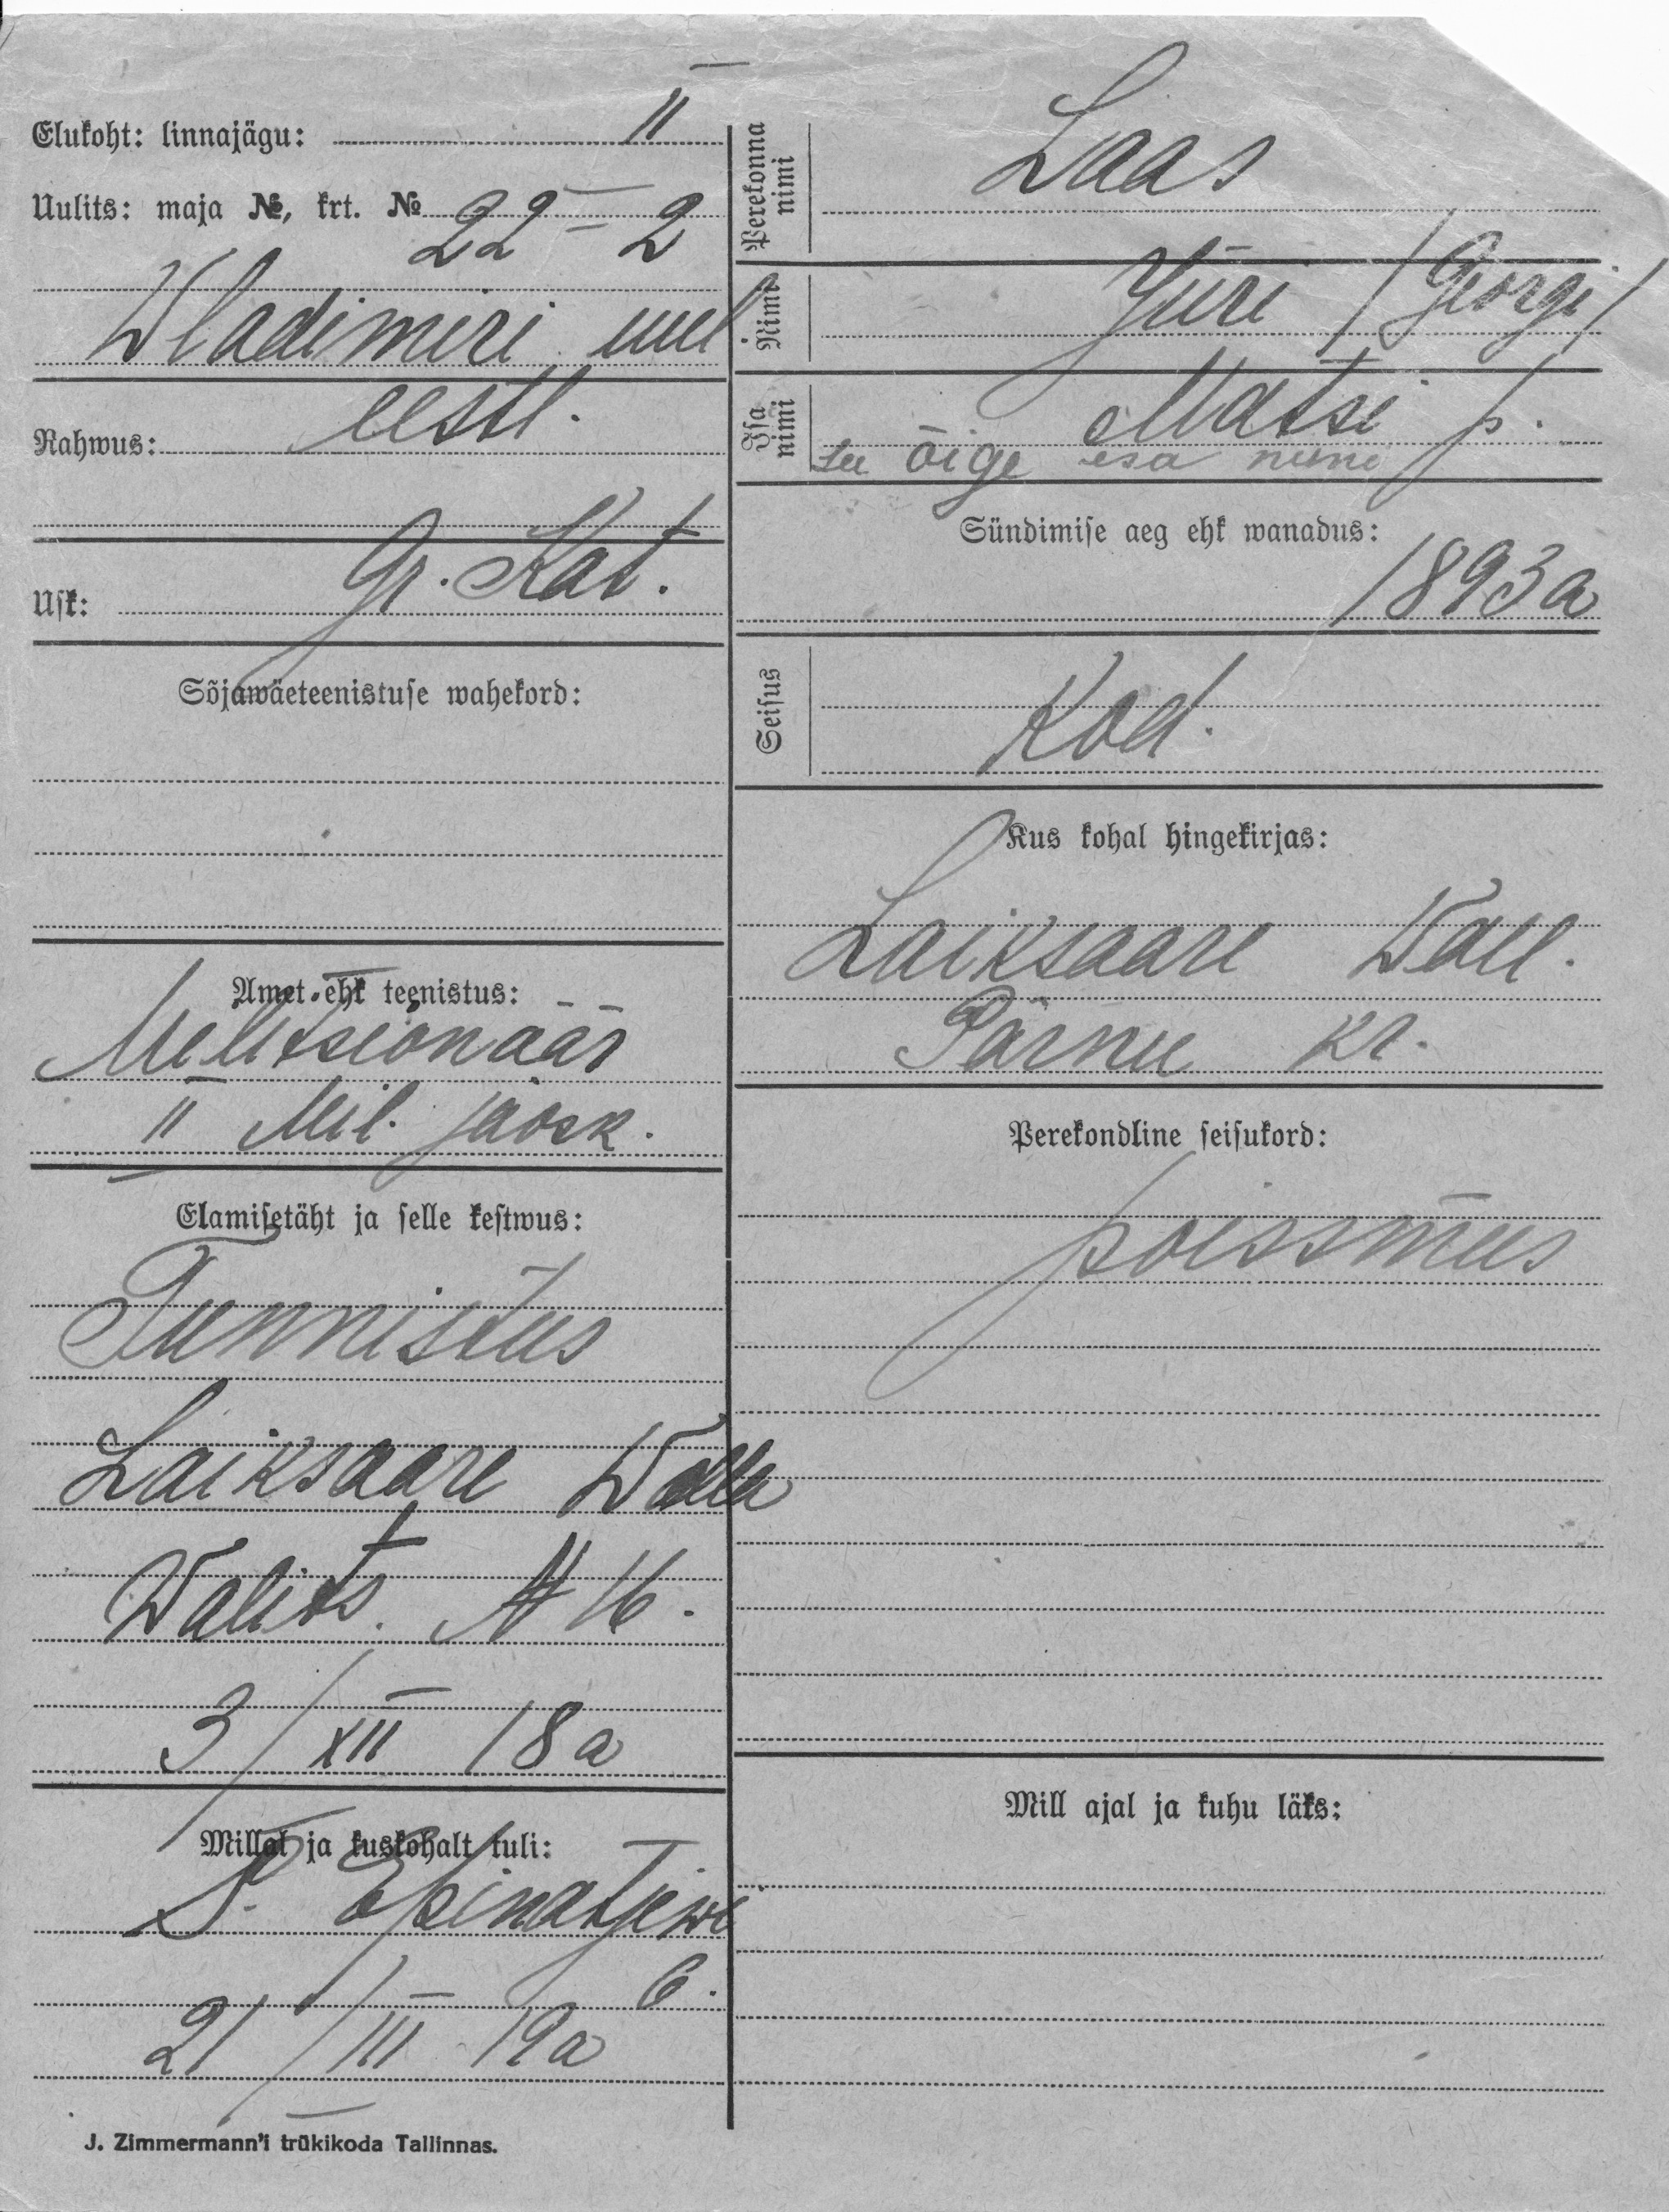 Elukoht: linnajägu: II
Uulits: maja №, krt. № 22 – 2
Wladimiri uul
Rahwus: eestl.
Usk: Gr. Kat.
Sõjawäeteenistuse wahekord:
Amet ehk teenistus:
Melitsionäär
II Mil. jaosk.
Elamisetäht ja selle kestwus:
Tunnistus
Laiksaare Walla
Walits. N 16.
3/XII 18 a
Millal ja kuskohalt tuli:
21/III 19 a
J. Zimmermann'i trükikoda Tallinnas.
Perekonna nimi
Laas
Nimi
Jüri /Georgi/
Isa nimi
Matsi p.
see õige isa nimi
Sündimise aeg ehk wanadus:
1893 a
Seisus
Kod.
Kus kohal hingekirjas:
Laiksaare Wall.
Pärnu Kr.
Perekondline seisukord:
poissmees
Mill ajal ja kuhu läks: